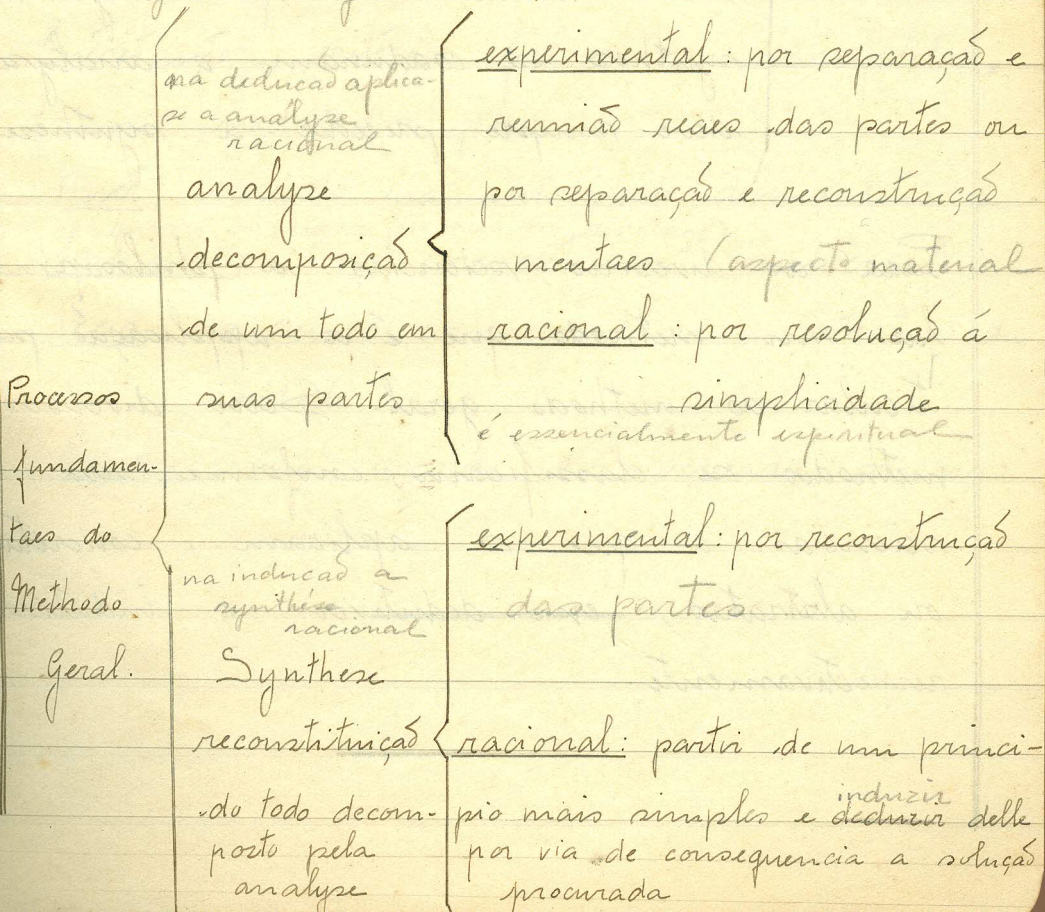 Processos
fundamen-
taes do
Methodo
Geral.
na deducaõ aplica-
se a analyse
racional
analyse
decomposiçaõ
de um todo em
suas partes
experimental: por separaçaõ e
reuniaõ reaes das partes ou
por separaçaõ e reconstruçaõ
mentaes (aspecto material
racional: por resoluçaõ á
simplicidade
é essencialmente espiritual
na inducaõ a
synthése
racional
Synthese
reconstituiçaõ
do todo decom-
posto pela
analyse
experimental: por reconstruçaõ
das partes
racional: partir de um princi-
induzir
pio mais simples e deduzir delle
por via de consequencia a soluçaõ
procurada